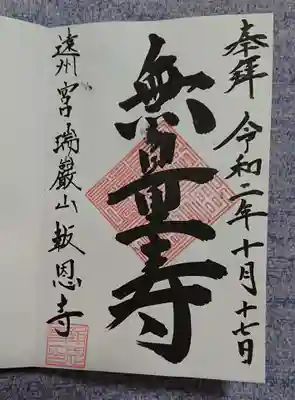 奉拝 令和二年十月十七日
無量寿
遠州 宮 瑞巖山 報恩寺